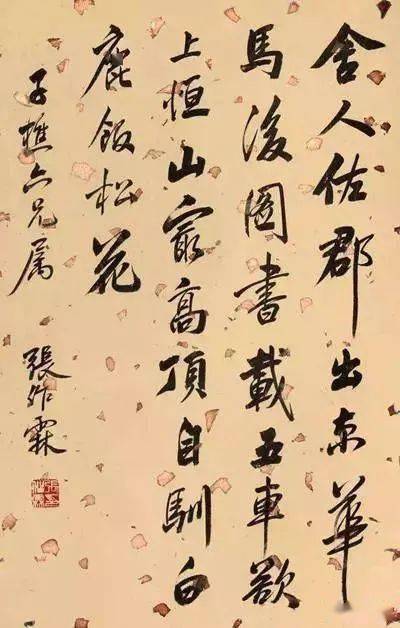 舍人佐郡出京華
馬後圖書載五車欲
上恒山最高頂自馴白
鹿飯松花
子樵六兄屬
張作霖